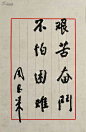 艰苦奋鬥
不怕困难
周恩来